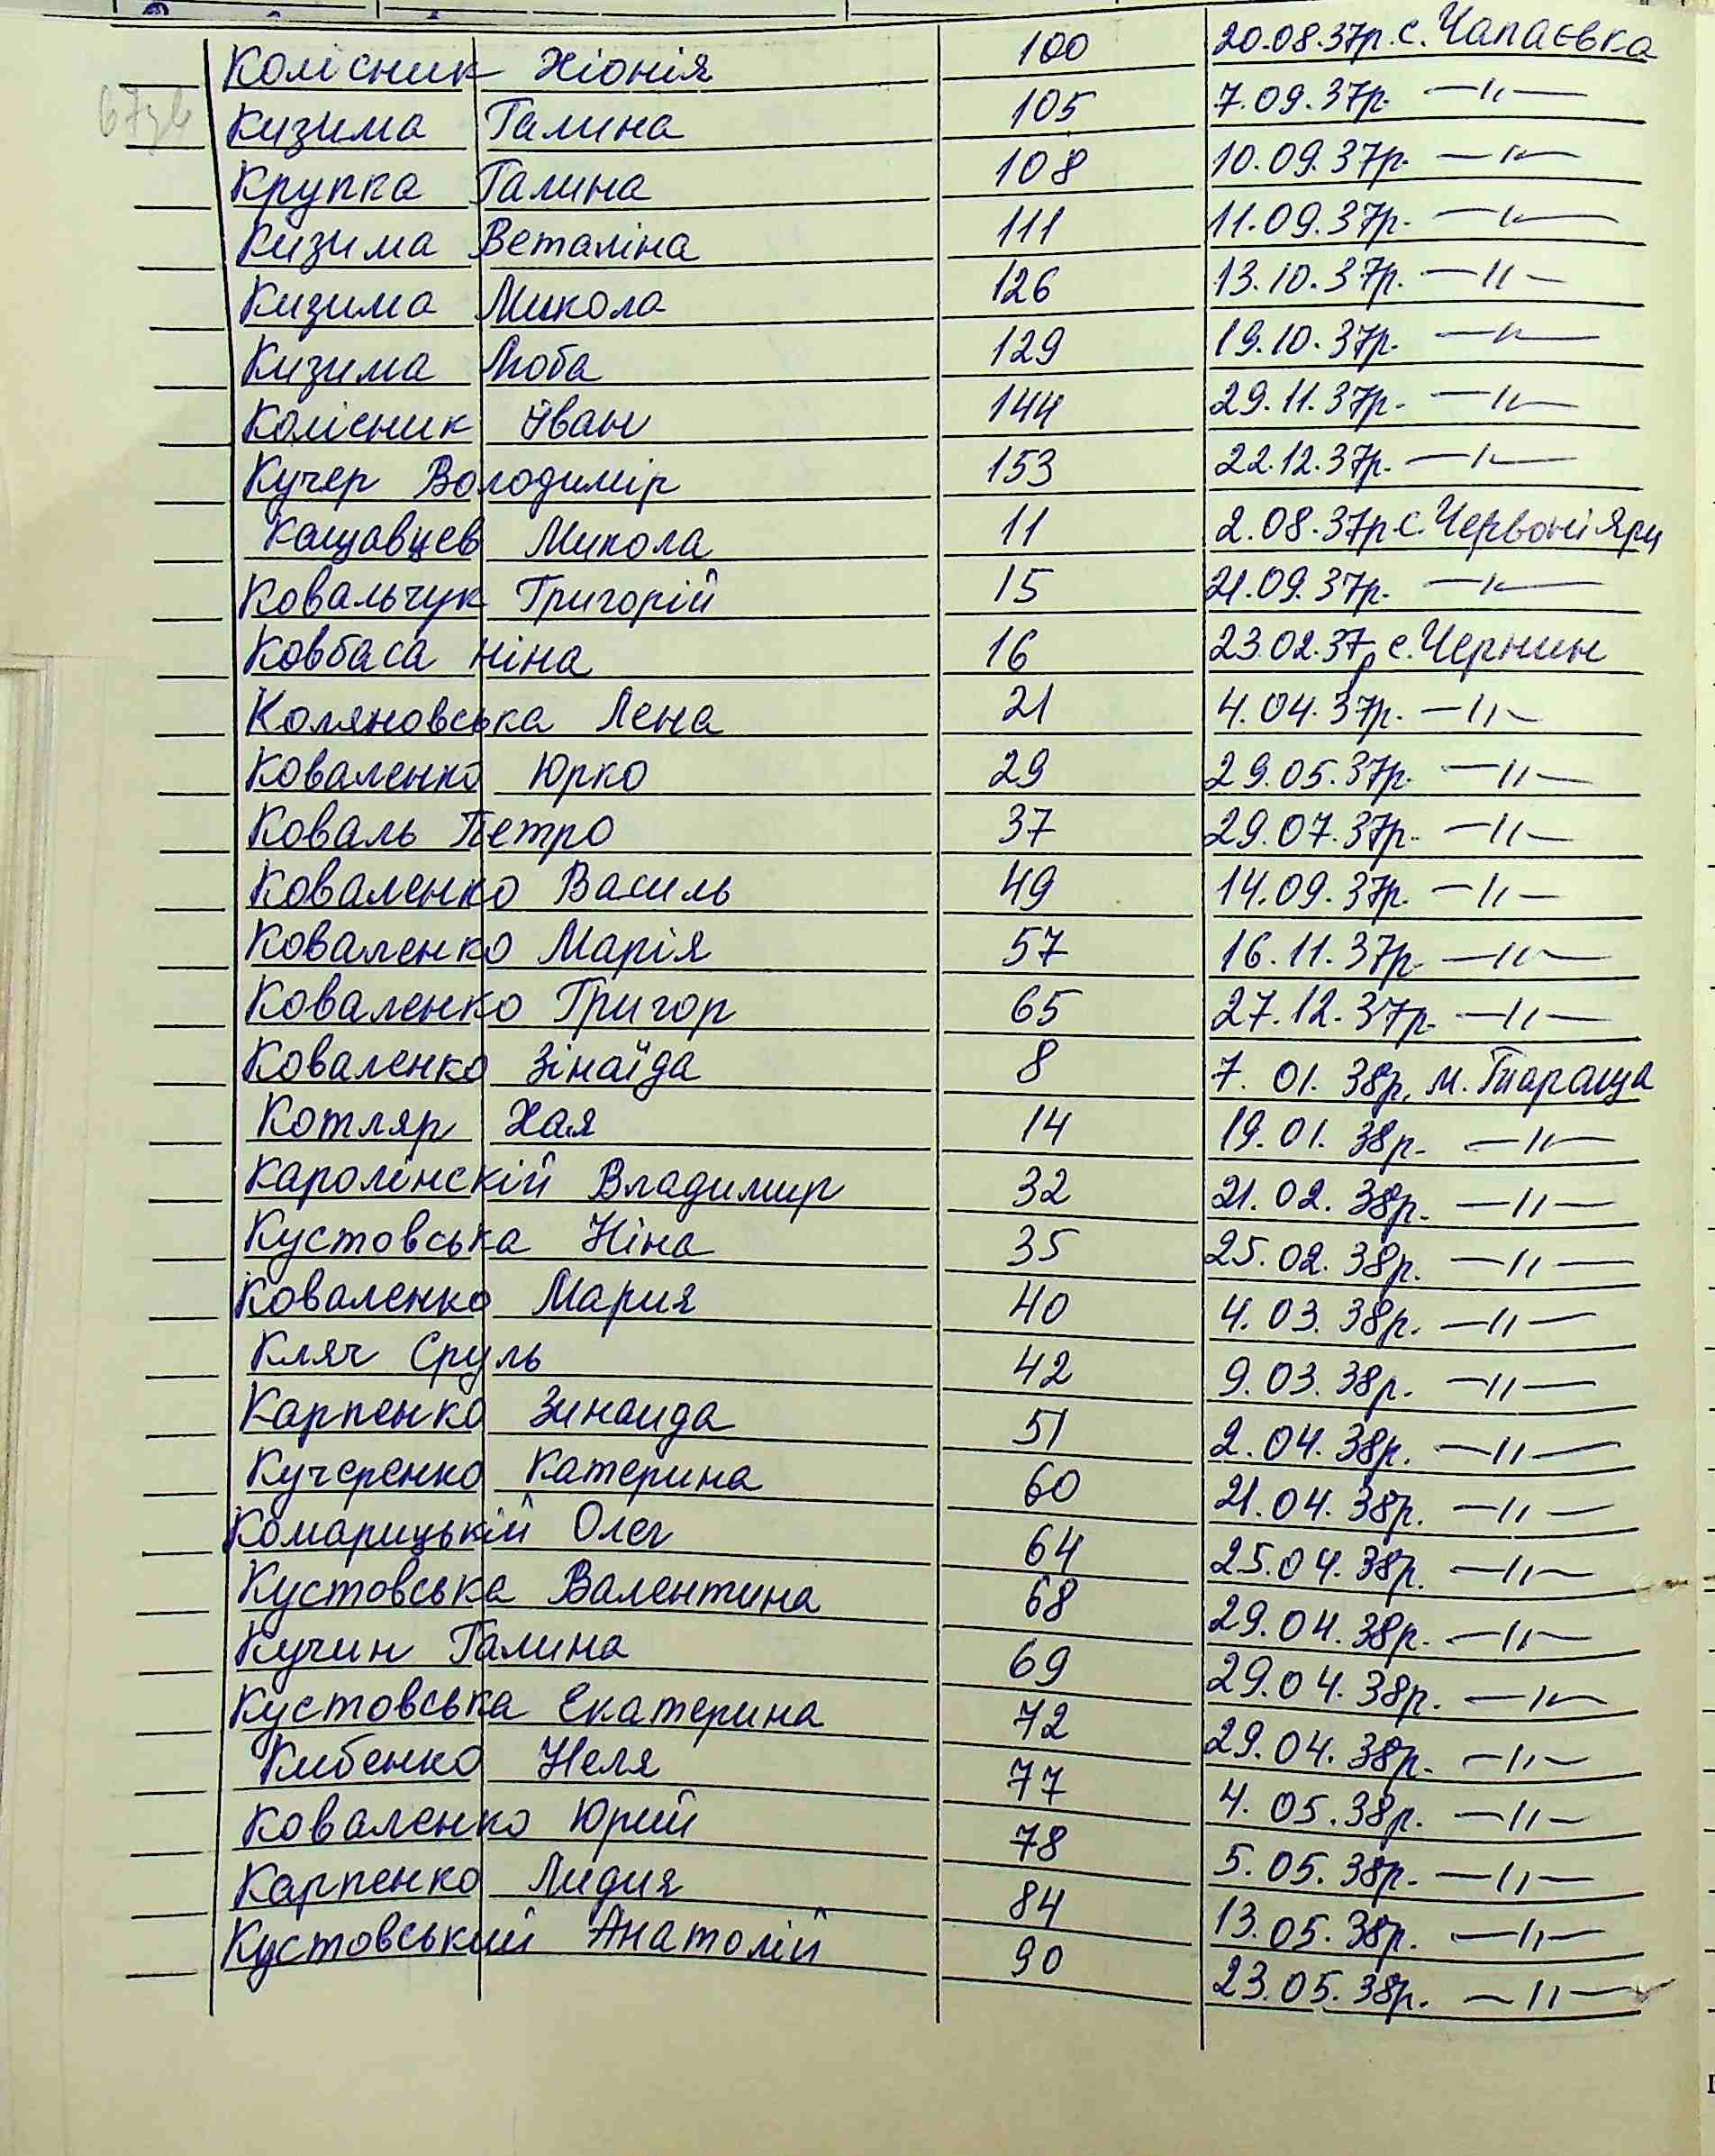 Колісник Хіонія 100 20.08.37р. с. Чапаєвка
Кизима Галина 105 7.09.37р. —„—
Крупка Галина 108 10.09.37р. —„—
Кизима Веталіна 111 11.09.37р. —„—
Кизима Микола 126 13.10.37р. —„—
Кизима Люба 129 19.10.37р. —„—
Колісник Іван 144 29.11.37р. —„—
Кучер Володимір 153 22.12.37р. —„—
Кащавцев Микола 11 2.08.37р с. Червоні Яри
Ковальчук Григорій 15 21.09.37р. —„—
Ковбаса Ніна 16 23.02.37р с. Чернин
Коляновська Лена 21 4.04.37р. —„—
Коваленко Юрко 29 29.05.37р. —„—
Коваль Петро 37 29.07.37р. —„—
Коваленко Василь 49 14.09.37р. —„—
Коваленко Марія 57 16.11.37р. —„—
Коваленко Григор 65 27.12.37р. —„—
Коваленко Зінаїда 8 7.01.38р. м. Тараща
Котляр Хая 14 19.01.38р. —„—
Каролінскій Владимир 32 21.02.38р. —„—
Кустовська Ніна 35 25.02.38р. —„—
Коваленко Мария 40 4.03.38р. —„—
Кляч Сруль 42 9.03.38р. —„—
Карпенко Зинаида 51 2.04.38р. —„—
Кучеренко Катерина 60 21.04.38р. —„—
Комарицькій Олег 64 25.04.38р. —„—
Кустовська Валентина 68 29.04.38р. —„—
Кучин Галина 69 29.04.38р. —„—
Кустовська Екатерина 72 29.04.38р. —„—
Кибенко Неля 77 4.05.38р. —„—
Коваленко Юрий 78 5.05.38р. —„—
Карпенко Лидия 84 13.05.38р. —„—
Кустовський Анатолій 90 23.05.38р. —„—